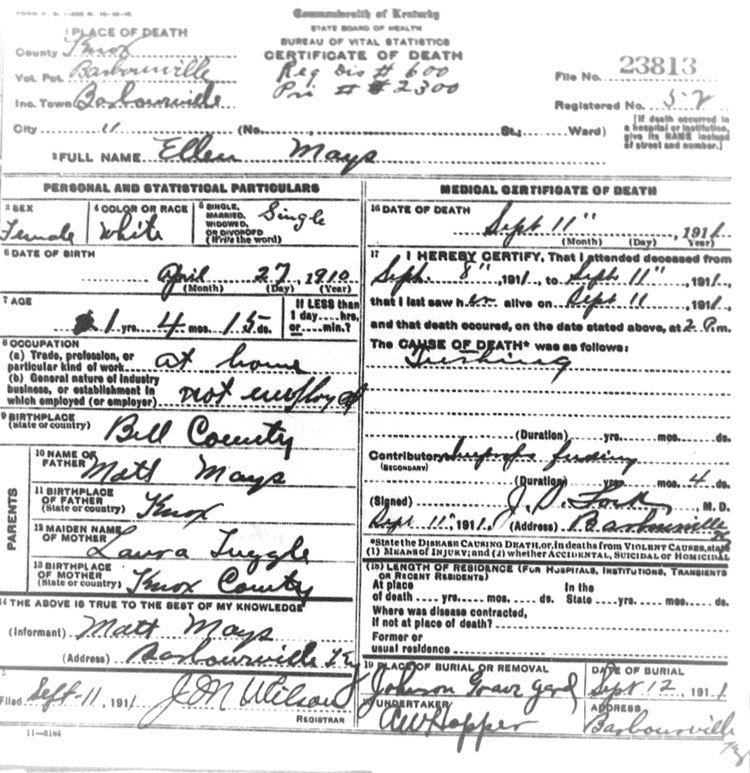 Commonwealth of Kentucky
STATE BOARD OF HEALTH
BUREAU OF VITAL STATISTICS
CERTIFICATE OF DEATH
1 PLACE OF DEATH
County Knox
Vot. Pct. Barbourville
Inc. Town Barbourville
City " (No. St.; Ward)
Reg Dis # 600
Pri # 2300
File No. 23813
Registered No. 52
[If death occurred in a hospital or institution, give its NAME instead of street and number.]
2 FULL NAME Ellen Mays
PERSONAL AND STATISTICAL PARTICULARS
3 SEX Female
4 COLOR OR RACE White
5 SINGLE, MARRIED, WIDOWED, OR DIVORCED (Write the word) Single
6 DATE OF BIRTH
April 27, 1910
(Month) (Day) (Year)
7 AGE
1 yrs. 4 mos. 15 ds.
If LESS than 1 day....hrs, or....min.?
8 OCCUPATION
(a) Trade, profession, or particular kind of work at home
(b) General nature of industry business, or establishment in which employed (or employer) not employed
9 BIRTHPLACE
(State or country) Bell County
PARENTS
10 NAME OF FATHER Matt Mays
11 BIRTHPLACE OF FATHER (State or country) Knox
12 MAIDEN NAME OF MOTHER Laura Tuggle
13 BIRTHPLACE OF MOTHER (State or country) Knox County
14 THE ABOVE IS TRUE TO THE BEST OF MY KNOWLEDGE
(Informant) Matt Mays
(Address) Barbourville Ky
Filed Sept-11, 1911 J M Wilson
REGISTRAR
11-3184
MEDICAL CERTIFICATE OF DEATH
16 DATE OF DEATH
Sept 11", 1911
(Month) (Day) (Year)
17 I HEREBY CERTIFY, That I attended deceased from
Sept. 8", 1911, to Sept 11", 1911,
that I last saw her alive on Sept 11, 1911,
and that death occured, on the date stated above, at 2 P.m.
The CAUSE OF DEATH* was as follows:
(Duration) yrs. mos. ds.
Contributory
(SECONDARY)
(Duration) yrs. mos. 4 ds.
(Signed) M. D.
Sept 11", 1911. (Address) Barbourville
*State the DISEASE CAUSING DEATH, or, in deaths from VIOLENT CAUSES, state
(1) MEANS OF INJURY; and (2) whether ACCIDENTAL, SUICIDAL or HOMICIDAL
(18) LENGTH OF RESIDENCE (FOR HOSPITALS, INSTITUTIONS, TRANSIENTS OR RECENT RESIDENTS)
At place of death yrs. mos. ds. In the State yrs. mos. ds.
Where was disease contracted,
If not at place of death?
Former or
usual residence
19 PLACE OF BURIAL OR REMOVAL
Johnson Grave yard
DATE OF BURIAL
Sept 12, 1911
UNDERTAKER
AW Hopper
ADDRESS
Barbourville
Ky